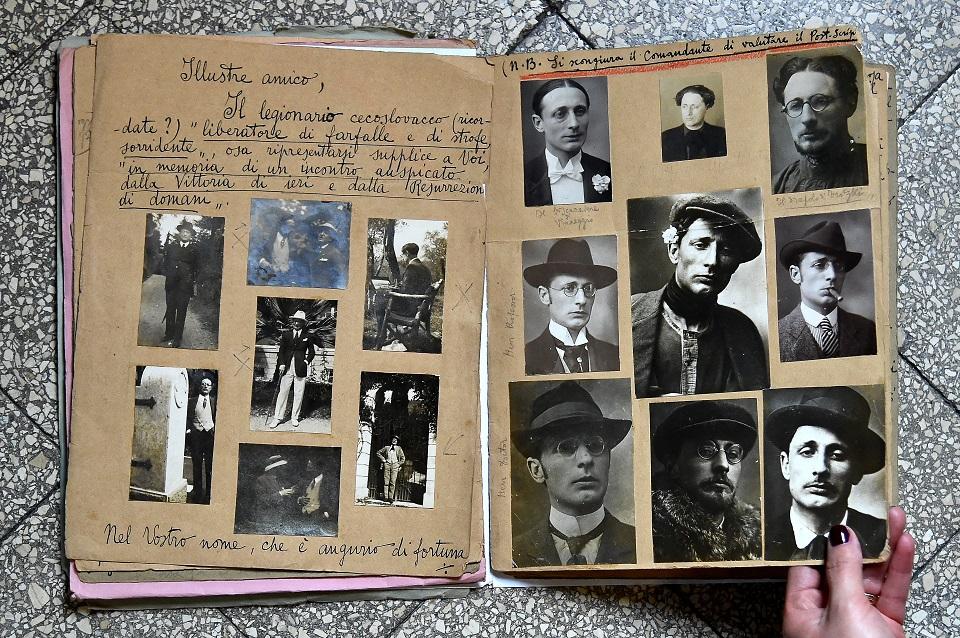 Illustre amico,
Il legionario cecoslovacco (ricor-
date?) "liberatore di farfalle e di strofe
sorridente„, osa ripresentarsi supplice a Voi,
"in memoria di un incontro auspicato
dalla Vittoria di ieri e dalla Resurrezione
di domani„.
Nel Vostro nome, che è augurio di fortuna
(N.B. Si scongiura il Comandante di valutare il Post. Scrip
Viareggio
Herr Professor
Herr